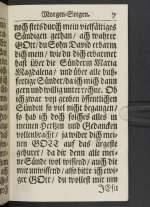 Morgen-Seegen. 9
noch stets durch mein vielfältiges
Sündigen gethan / ach wahrer
GOtt / du Sohn David erbarm
dich mein / wie du dich erbarmet
hast über die Sünderin Maria
Magdalena / und über alle buß-
fertige Sünder / da ich mich dann
gern und willig unter rechne. Ob
ich zwar von groben öffentlichen
Sünden so viel nicht begangen /
so hab ich doch solches alles in
meinem Hertzen und Gedancken
vollenbracht / ja wider dich mei-
nen GOTT auf das ärgeste
gehuret / da dir denn alle mei-
ne Sünde wol wissend / auch die
mir unwissend / also bitte ich ewi-
ger GOtt / du wollest mir um
JEsu